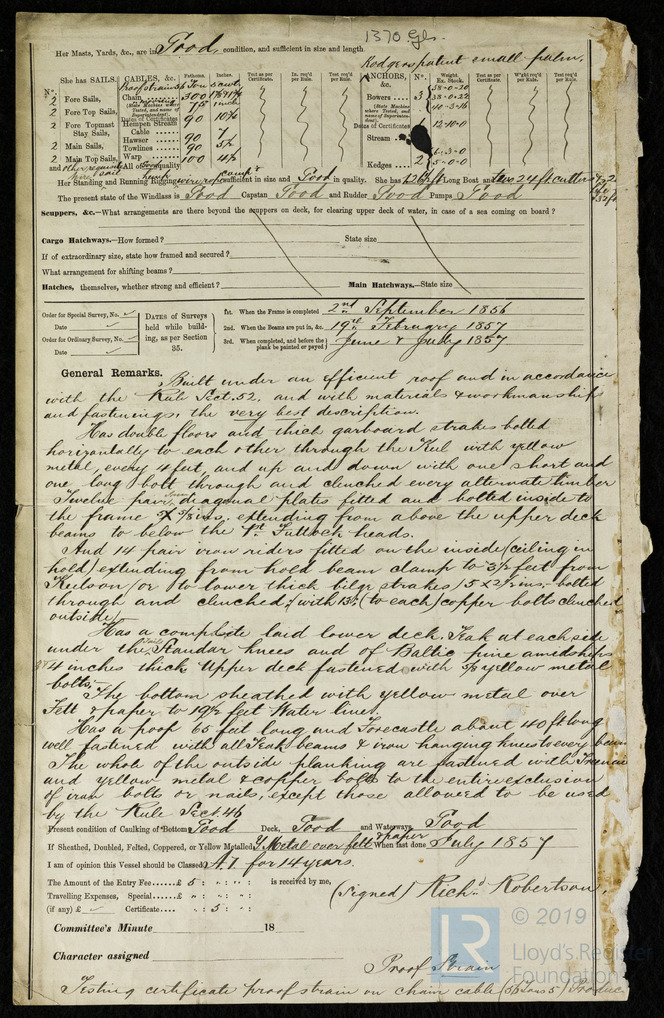 1370 Gls.
Her Masts, Yards, &c., are in Good condition, and sufficient in size and length
Rodgers patent small palm.
She has SAILS. CABLES, &c. Fathoms. Inches. Test as per Certificate. In. req'd per Rule. Test req'd per Rule. ANCHORS, &c. N°. Weight. Ex. Stock. Test as per Certificate. W'ght req'd per Rule. Test req'd per Rule.
N°.
2 Fore Sails, Chain 300
2 Fore Top Sails, 75 inch
Hempen Stream Cable 90 10½
2 Fore Topmast Stay Sails, Hawser 90 7
2 Main Sails, Towlines 90 5½
2 Main Top Sails, Warp 100 4½
and other requisite All of quality.
Bowers 3 38-0-20
38-0-22
40-3-16
(State Machine where Tested, and name of Superintendent.)
Dates of Certificates
Stream 1 12-10-0
Kedges 2 6-3-0
5-0-0
Her Standing and Running Rigging wire rope sufficient in size and Good in quality. She has Long Boat and two 24 ft cutters
The present state of the Windlass is Good Capstan Good and Rudder Good Pumps Good
Scuppers, &c.—What arrangements are there beyond the scuppers on deck, for clearing upper deck of water, in case of a sea coming on board?
Cargo Hatchways.—How formed? State size
If of extraordinary size, state how framed and secured?
What arrangement for shifting beams?
Hatches, themselves, whether strong and efficient? Main Hatchways.—State size
Order for Special Survey, No.
Date
Order for Ordinary Survey, No.
Date
DATES of Surveys held while building, as per Section 35.
1st. When the Frame is completed 2nd September 1856
2nd. When the Beams are put in, &c. 19th February 1857
3rd. When completed, and before the plank be painted or payed June & July 1857
General Remarks. Built under an efficient roof and in accordance
with the Rule Sect. 52, and with materials & workmanship
and fastenings, the very best description.
Has double floors and thick garboard strakes bolted
horizontally to each other through the Keel with yellow
metal, every 4 feet, and up and down with one short and
one long bolt through and clenched every alternate timber
Twelve pair iron diagonal plates fitted and bolted inside to
the frame x 5/8 ins. extending from above the upper deck
beams to below the 1st Futtock heads.
And 14 pair iron riders fitted on the inside (ceiling in
hold) extending from hold beam clamp to 3½ feet from
Keelson, or to lower thick bilge strakes, 5 x 2½ ins. bolted
through and clenched, with 13 (to each) copper bolts clenched
outside
Has a complete laid lower deck. Teak at each side
under the Standar knees and of Baltic pine amidships
4 inches thick Upper deck fastened with 5/8 yellow metal
bolts.
The bottom sheathed with yellow metal over
Felt & paper to 19½ feet Water line.
Has a poop 65 feet long and Forecastle about 40 ft long
well fastened with all Teak beams & iron hanging knees to every beam
The whole of the outside planking are fastened with Trenails
and yellow metal & copper bolts to the entire exclusion
of iron bolts or nails, except those allowed to be used
by the Rule Sect. 46
Present condition of Caulking of Bottom Good Deck, Good and Waterways Good
If Sheathed, Doubled, Felted, Coppered, or Yellow Metalled Y. Metal over felt & paper When last done July 1857
I am of opinion this Vessel should be Classed A.1 for 14 years.
The Amount of the Entry Fee......£ 5 : " : " : is received by me,
Travelling Expenses, Special......£ " : " : " :
(if any) £ Certificate .... " : 5 : " :
(Signed) Richd Robertson.
Committee's Minute 18
Character assigned
Proof Strain
Testing certificate proof strain on chain cable
LR
© 2019
Lloyd's Register
Foundation